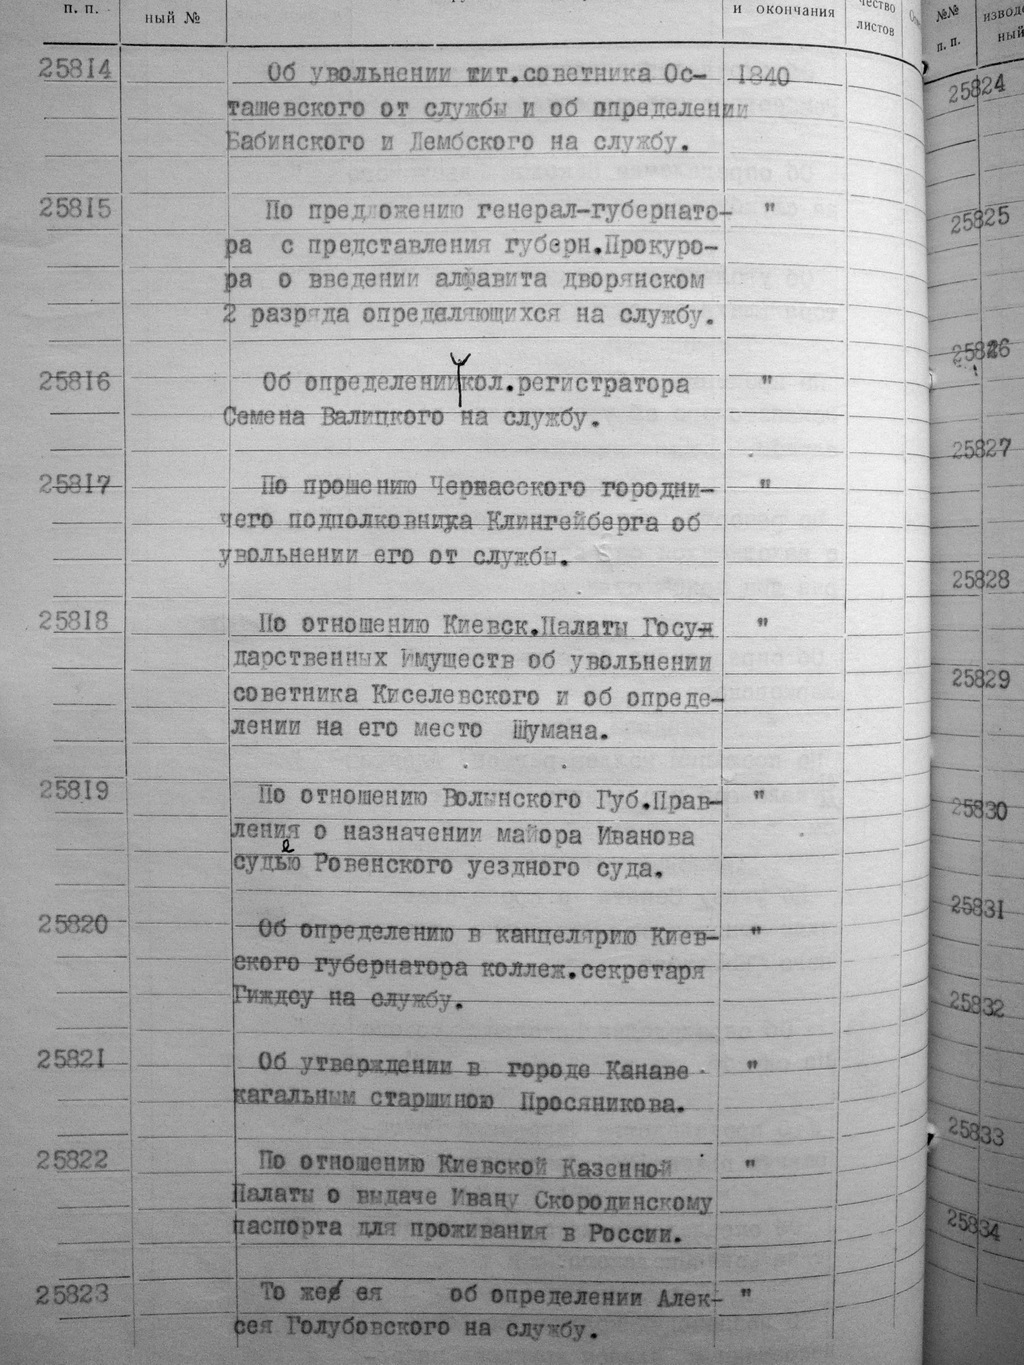 п. п.
ный №
и окончания
чество
листов
№№
п. п.
изводс
ный
25814 Об увольнении тит.советника Ос- 1840
ташевского от службы и об определении
Бабинского и Дембского на службу.
25815 По предложению генерал-губернато- "
ра с представления губерн.Прокуро-
ра о введении алфавита дворянском
2 разряда определяющихся на службу.
25816 Об определении кол.регистратора "
Семена Валицкого на службу.
25817 По прошению Черкасского городни- "
чего подполковника Клингейберга об
увольнении его от службы.
25818 По отношению Киевск.Палаты Госу- "
дарственных Имуществ об увольнении
советника Киселевского и об опреде-
лении на его место Шумана.
25819 По отношению Волынского Губ.Прав- "
ления о назначении майора Иванова
судьею Ровенского уездного суда.
25820 Об определению в канцелярию Киев- "
ского губернатора коллеж.секретаря
Гиждеу на службу.
25821 Об утверждении в городе Канаве "
кагальным старшиною Просяникова.
25822 По отношению Киевской Казенной "
Палаты о выдаче Ивану Скородинскому
паспорта для проживания в России.
25823 То же ея об определении Алек- "
сея Голубовского на службу.
25824
25825
25826
25827
25828
25829
25830
25831
25832
25833
25834